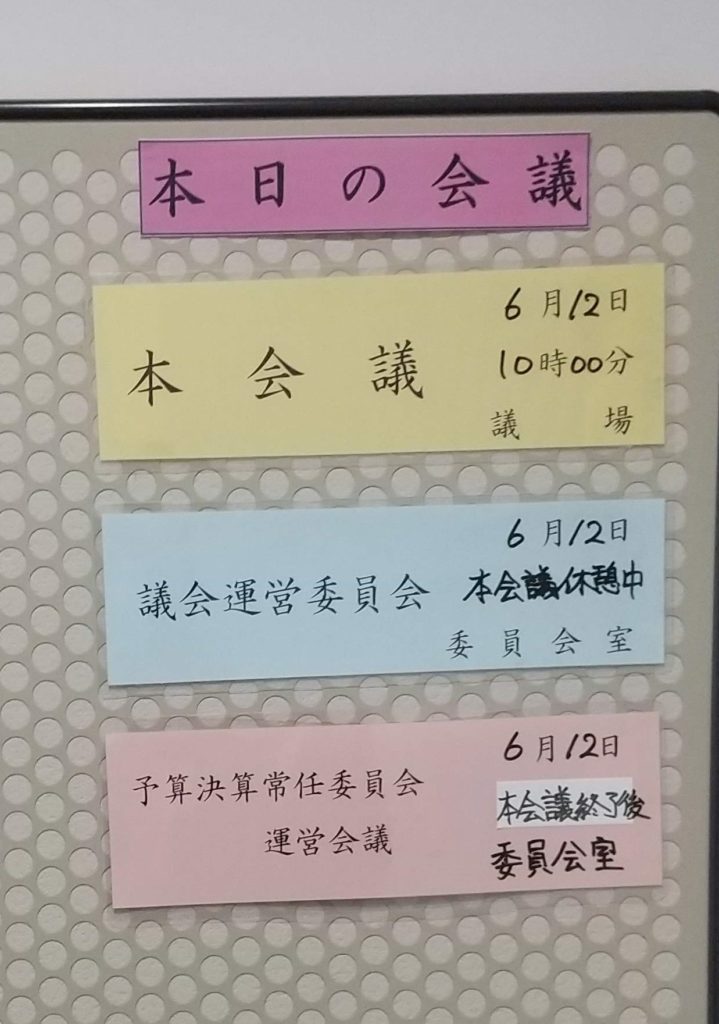 本日の会議
6月12日
本会議
10時00分
議場
6月12日
議会運営委員会
本会議休憩中
委員会室
6月12日
予算決算常任委員会
運営会議
本会議終了後
委員会室